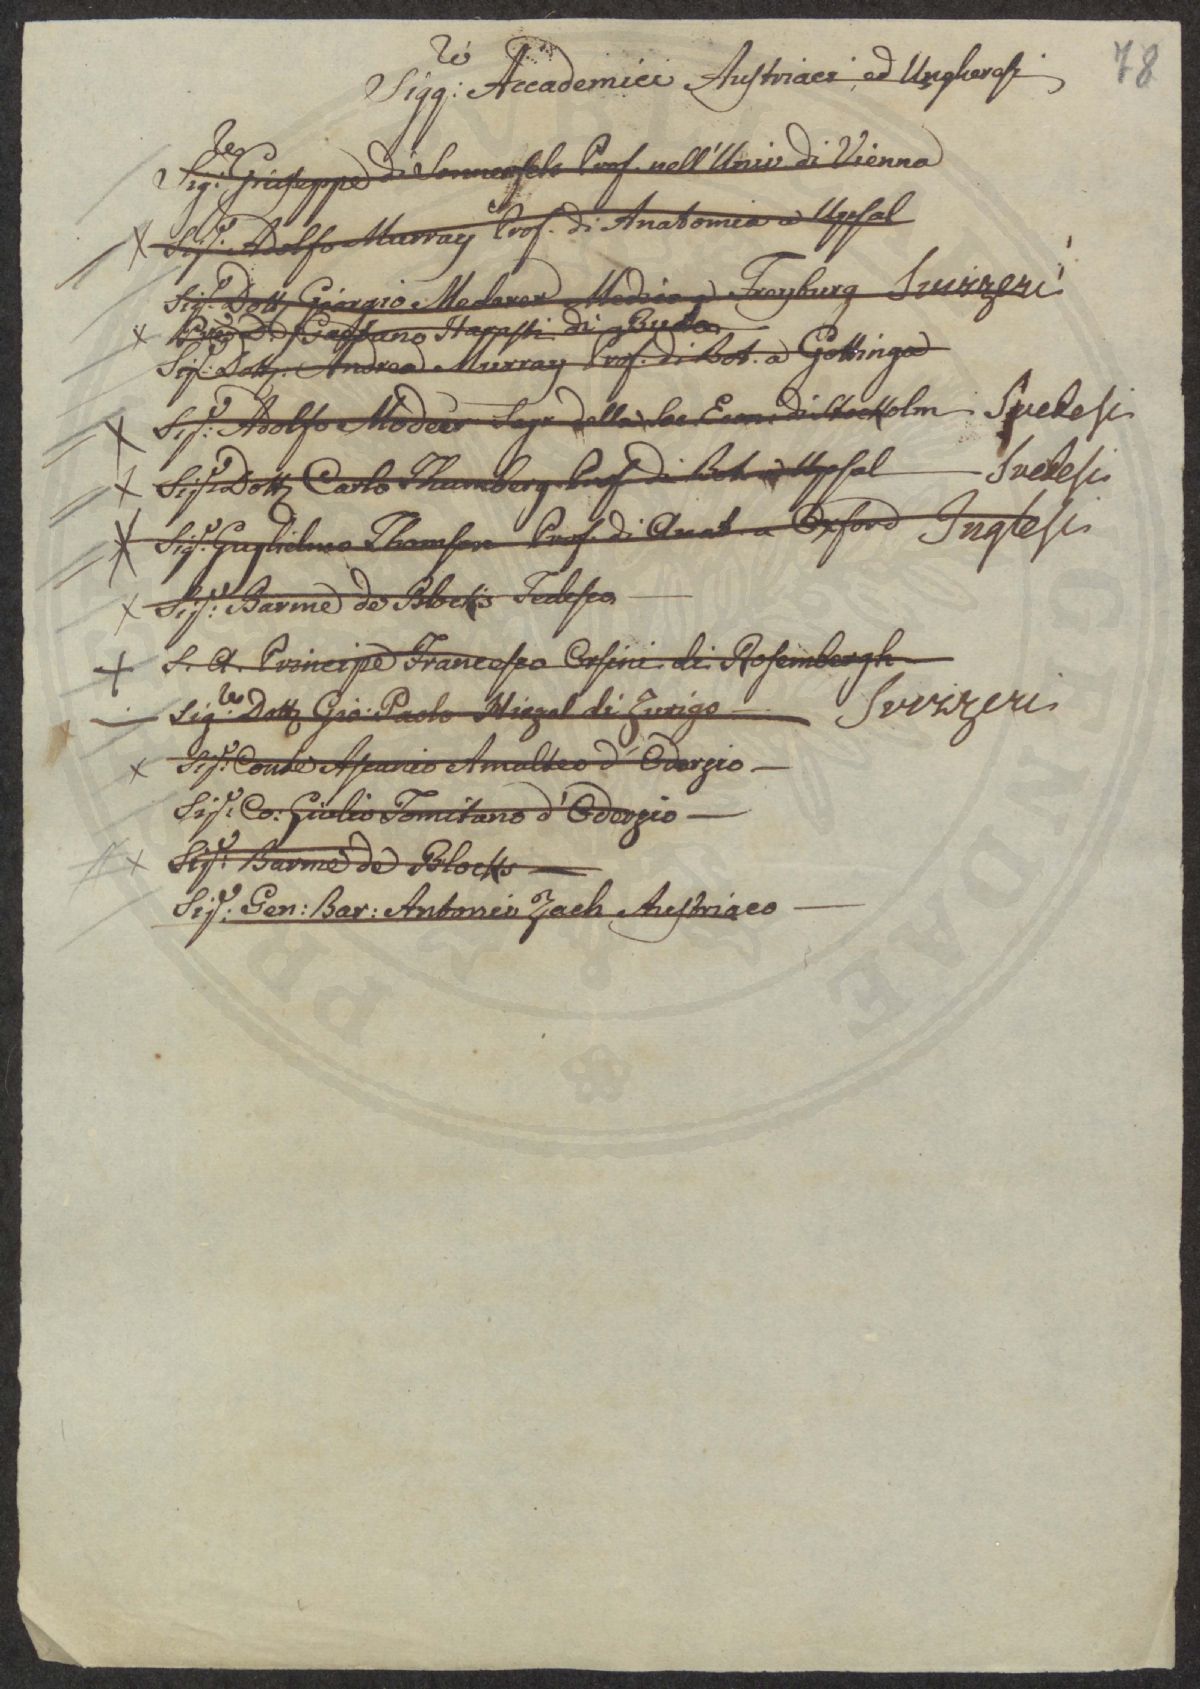 78
Sigg:ri Accademici Austriaci ed Ungheresi
Sig:re Giuseppe di Sonnenfels Prof. nell'Univ. di Vienna
Sig.r Adolfo Murray Prof. di Anatomia a Upsal
Sig.r Dott. Giorgio Mederer Medico a Freyburg Svizzeri
Gaetano di Buda
Sig.r Dott. Andrea Murray Prof. di Bot. a Gottinga
Sig.r Adolfo Modeer Segr. della Soc. Econ. di Stockolm Svedesi
Sig.r Dott. Carlo Thumberg Prof. di Bot. a Upsal — Svedesi
Sig.r Guglielmo Thomson Prof. di Anat. a Oxford Inglesi
Sig.r Barme de Blocks Tedesco —
S. A. Principe Francesco Orsini di Rosembergh
Sig:re Dott. Gio: Paolo di Zurigo — Svizzeri
Sig.r Conte Ascanio Amalteo d'Oderzio —
Sig.r Co: Giulio Tomitano d'Oderzio —
Sig.r Barme de Blocks —
Sig.r Gen: Bar: Antonio Zach Austriaco —